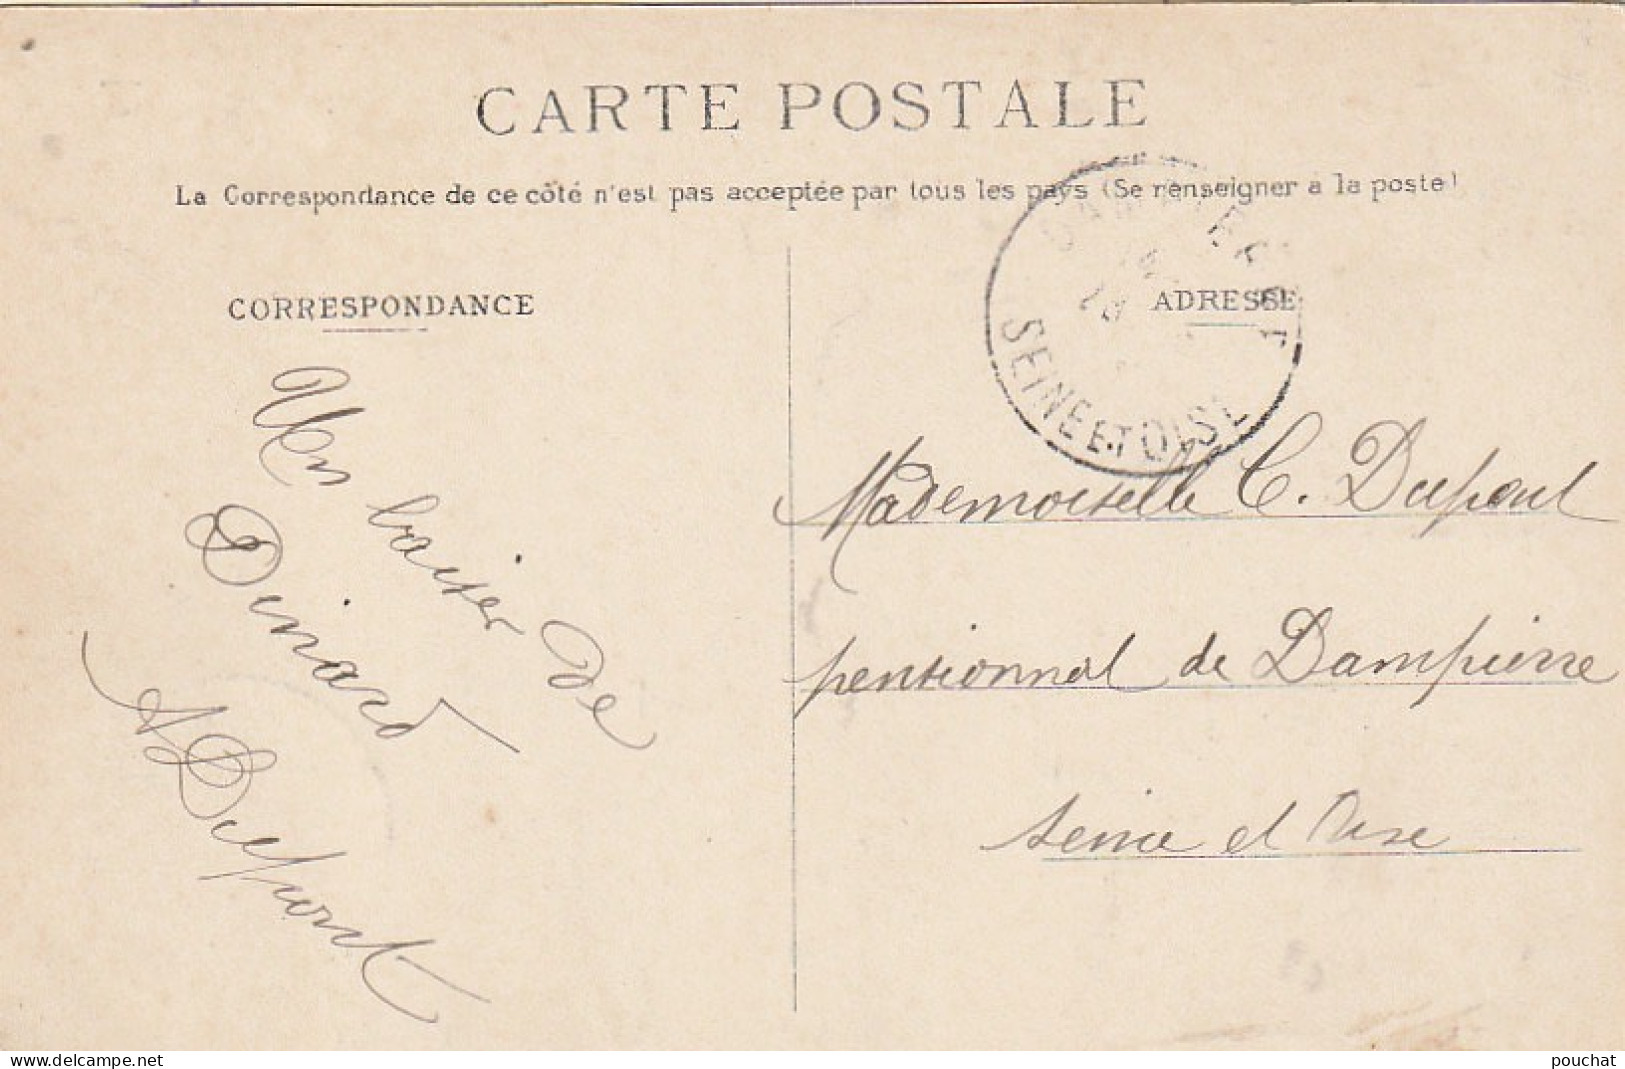 CARTE POSTALE
La Correspondance de ce côté n'est pas acceptée par tous les pays (Se renseigner à la poste)
CORRESPONDANCE
Un baiser de
Dinard
A Dupont
ADRESSE
SEINE ET OISE
Mademoiselle C. Dupont
pensionnat de Dampierre
Seine et Oise
delcampe.net
pouchat